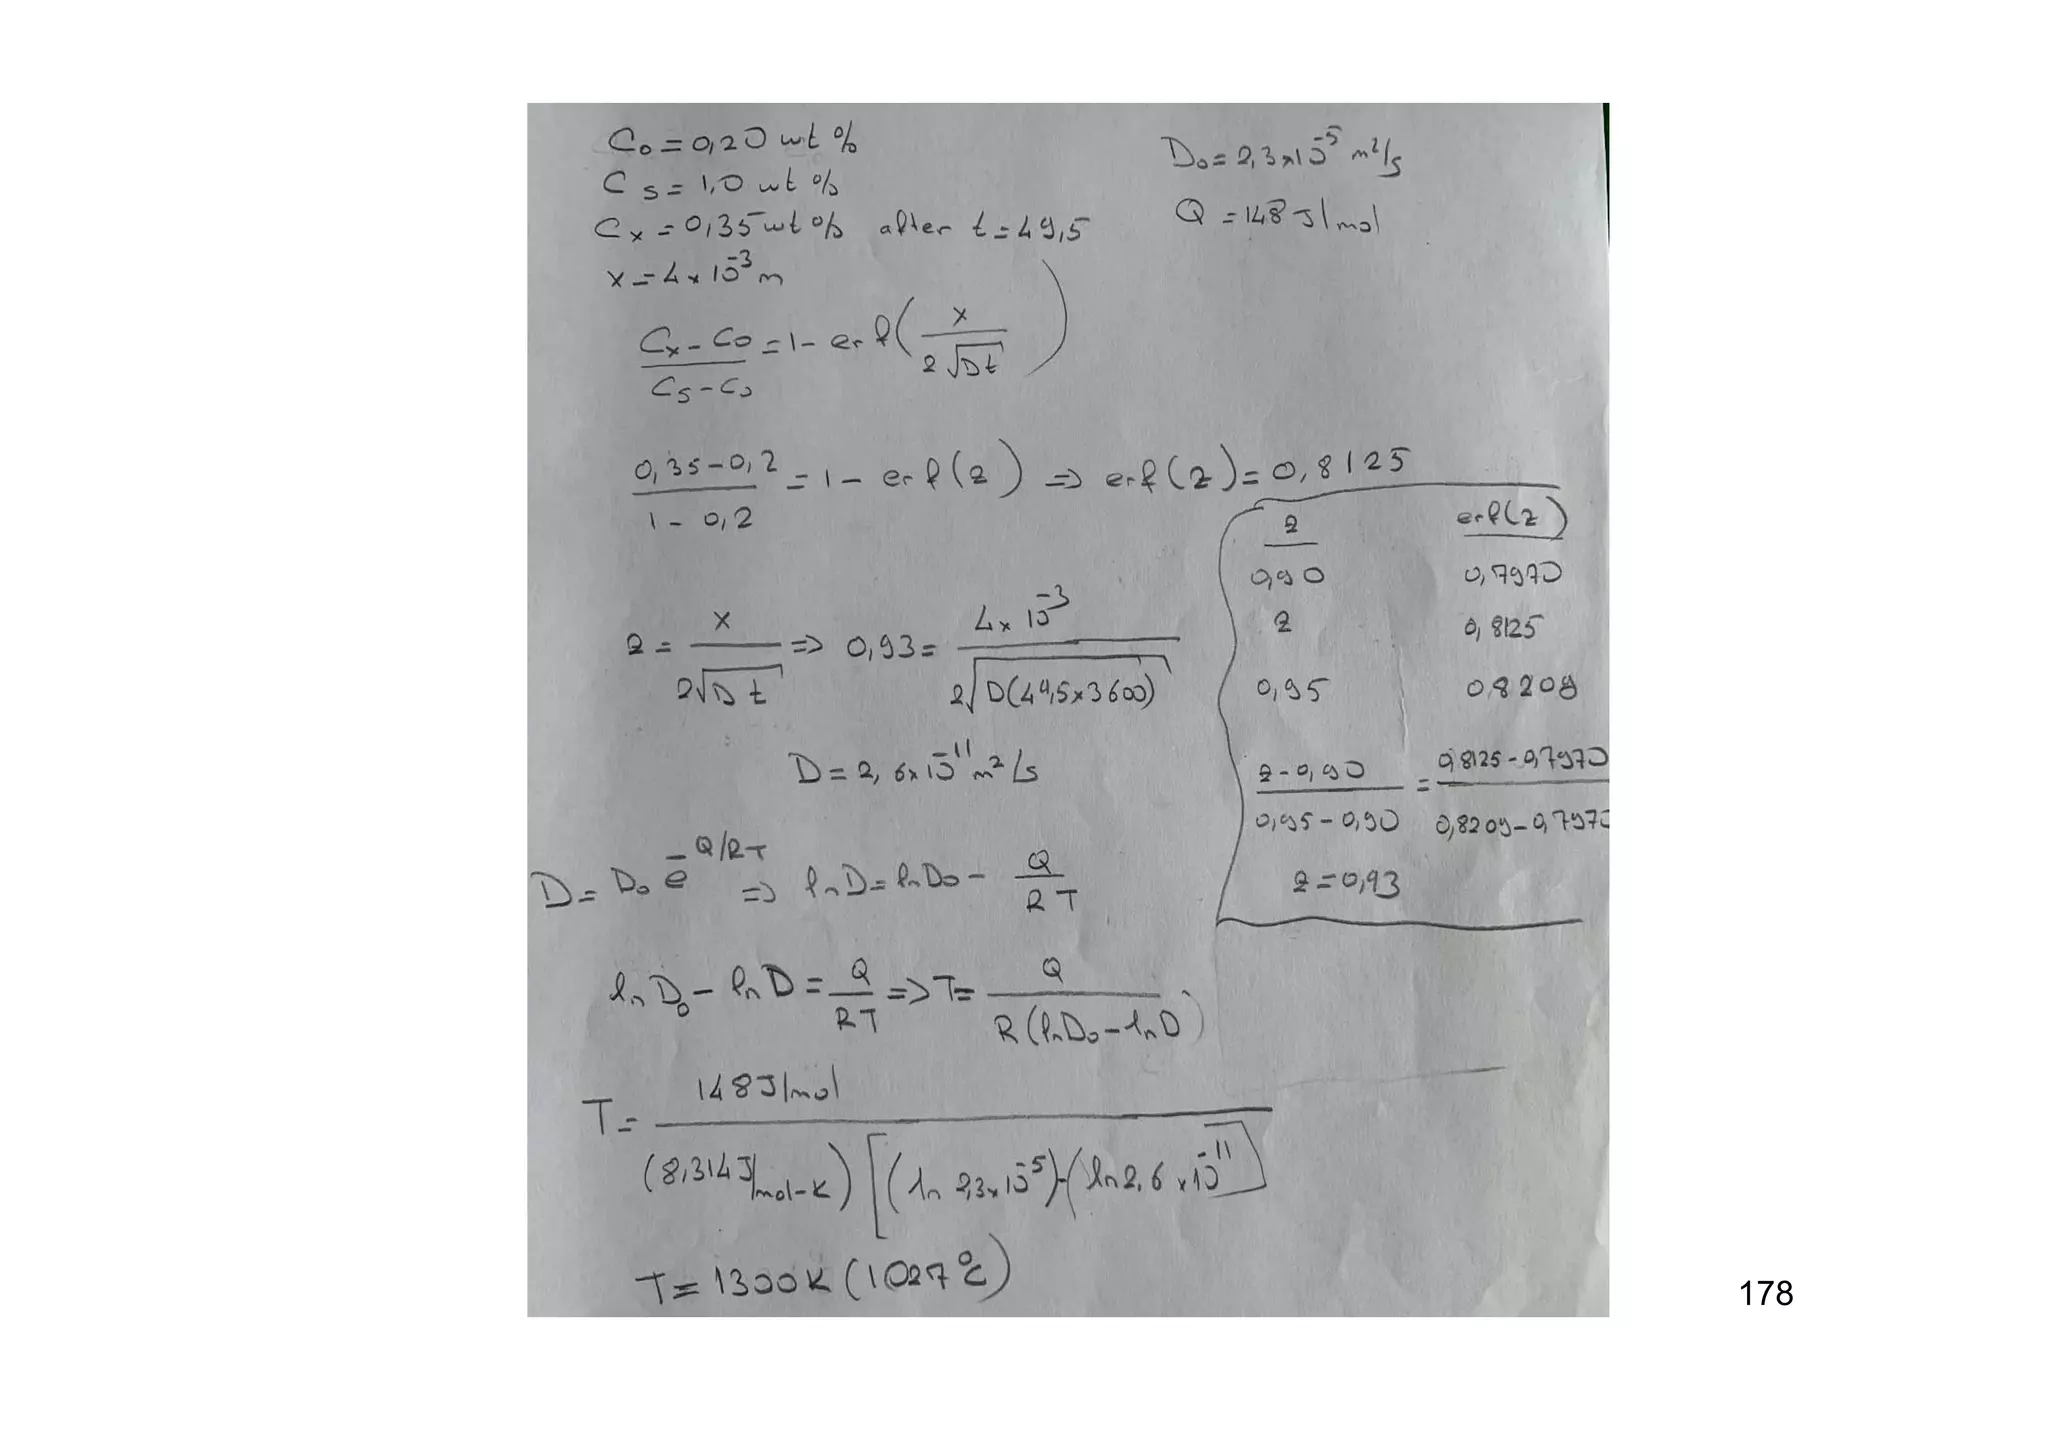 C₀ = 0,20 wt %
D₀ = 2,3×10⁻⁵ m²/s
C s = 1,0 wt %
Q = 148 J/mol
Cx = 0,35 wt % after t = 49,5
x = 4 × 10⁻³ m
(Cx - C₀)/(Cs - C₀) = 1 - erf(x/(2√Dt))
(0,35 - 0,2)/(1 - 0,2) = 1 - erf(z) ⇒ erf(z) = 0,8125
z erf(z)
0,90 0,7970
z 0,8125
0,95 0,8209
(z - 0,90)/(0,95 - 0,90) = (0,8125 - 0,7970)/(0,8209 - 0,7970)
z = 0,93
z = x/(2√D t) ⇒ 0,93 = (4 × 10⁻³)/(2√D(49,5×3600))
D = 2,6×10⁻¹¹ m²/s
D = D₀ e^-Q/RT ⇒ ln D = ln D₀ - Q/(R T)
ln D₀ - ln D = Q/(RT) ⇒ T = Q/(R (ln D₀ - ln D))
T = 148 J/mol / (8,314 J/mol-K) [(ln 2,3×10⁻⁵) - (ln 2,6 ×10⁻¹¹]
T = 1300 K (1027 °C)
178